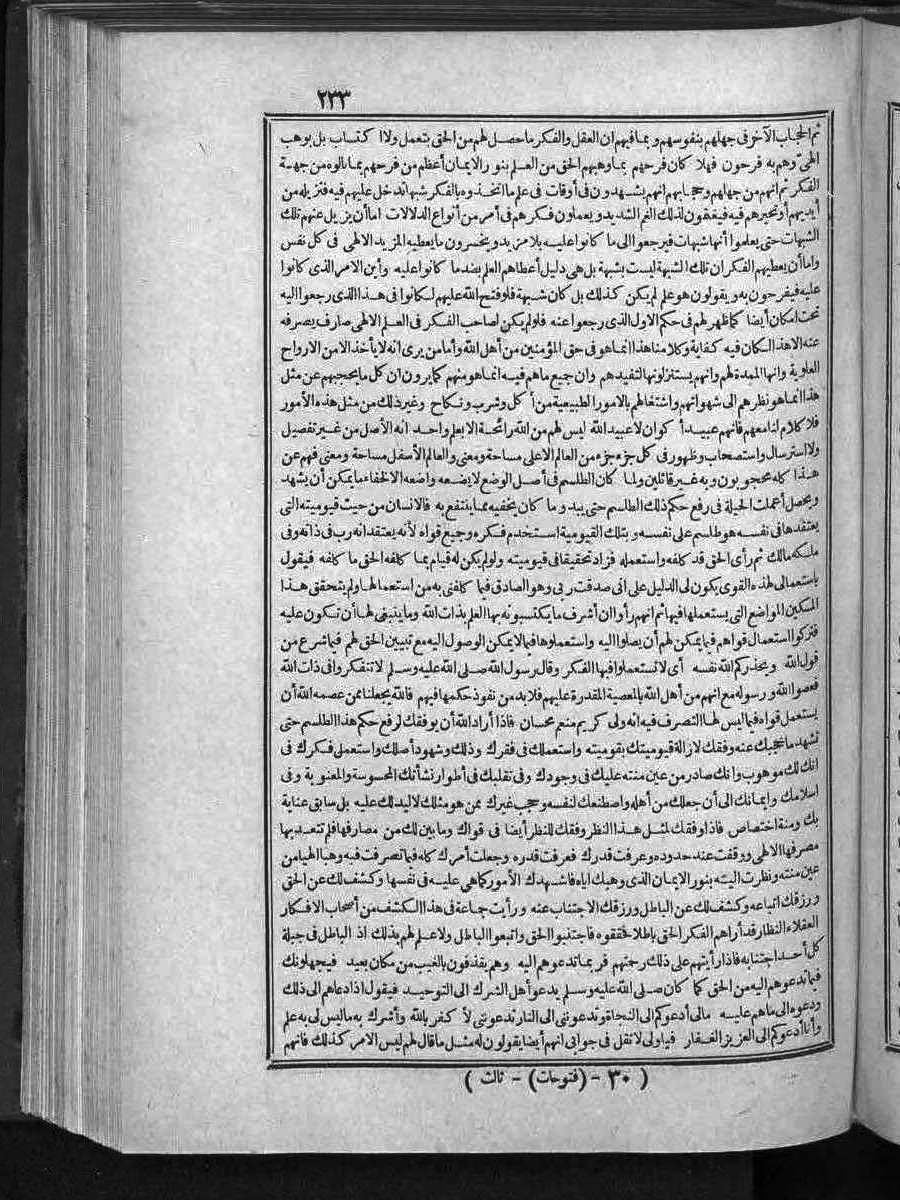 ٢٣٣
ثم الحجاب الآخر فى جهلهم بنفوسهم وبما فيهم ان العقل والفكر ما حصل لهم من الحق بتعمل ولا اكتساب بل بوهب
الهىّ وهم به فرحون فهلا كان فرحهم بما وهبهم الحق من العلم بنور الايمان أعظم من فرحهم بما نالوه من جهة
الفكر ثم انهم من جهلهم وحجابهم انهم يشهدون فى أوقات فى علم ما اتخذوه بالفكر شبها ندخل عليهم فيه فتزيله من
أيديهم أو تحيرهم فيه فيغمون لذلك الغم الشديد ويعملون فكرهم فى أمر من أنواع الدلالات اما أن يزيل عنهم تلك
الشبهات حتى يعلموا أنها شبهات فيرجعوا الى ما كانوا عليه بلا مزيد ويخسرون ما يعطيه المزيد الالهى فى كل نفس
واما أن يعطيهم الفكر ان تلك الشبهة ليست بشبهة بل هى دليل أعطاهم العلم بضد ما كانوا عليه وأين الامر الذى كانوا
عليه فيفرحون به ويقولون هو علم لم يكن كذلك بل كان شبهة فلو فتح الله عليهم لكانوا فى هذا الذى رجعوا اليه
تحت امكان أيضا كما ظهر لهم فى حكم الاول الذى رجعوا عنه فلو لم يكن لصاحب الفكر فى العلم الالهى صارف يصرفه
عنه الا هذا لكان فيه كفاية وكلامنا هذا انما هو فى حق المؤمنين من أهل الله وأما من يرى انه لا يأخذ الا من الارواح
العلوية وانها الممدة لهم وانهم يستنزلونها لتفيدهم وان جميع ما هم فيه انما هو منهم كما يرون ان كل ما يحجبهم عن مثل
هذا انما هو نظرهم الى شهواتهم واشتغالهم بالامور الطبيعية من أكل وشرب ونكاح وغير ذلك من مثل هذه الأمور
فلا كلام لنا معهم فانهم عبيد أكوان لا عبيد الله ليس لهم من الله رائحة الا بعلم واحد انه الأصل من غير تفصيل
ولا استرسال واستصحاب وظهور فى كل جزء جزء من العالم الاعلى مساحة ومعنى والعالم الأسفل مساحة ومعنى فهم عن
هذا كله محجوبون وبه غير قائلين ولما كان الطلسم فى أصل الوضع لا يضعه واضعه الا لخفاء ما يمكن أن يشهد
ويحصل أعملت الحيلة فى رفع حكم ذلك الطلسم حتى يبدو ما كان يخفيه مما ينتفع به فالانسان من حيث قيوميته التى
يعتقدها فى نفسه هو طلسم على نفسه وبتلك القيومية استخدم فكره وجميع قواه لأنه يعتقد انه رب فى ذاته وفى
ملكه مالك ثم رأى الحق قد كلفه واستعمله فزاد تحقيقا فى قيوميته ولو لم يكن له قيام بما كلفه الحق ما كلفه فيقول
باستعمالى لهذه القوى يكون لى الدليل على انى صدقت ربى وهو الصادق فيما كلفنى به من استعمالها ولم يتحقق هذا
المسكين المواضع التى يستعملها فيها ثم انهم رأوا ان أشرف ما يكتسبونه بها العلم بذات الله وما ينبغى لها أن تكون عليه
فتركوا استعمال قواهم فيما يمكن لهم أن يصلوا اليه واستعملوها فيما لا يمكن الوصول اليه مع تبيين الحق لهم فيما شرع من
قول الله ويحذركم الله نفسه أى لا تستعملوا فيها الفكر وقال رسول الله صلى الله عليه وسلم لا تتفكروا فى ذات الله
فعصوا الله ورسوله مع انهم من أهل الله بالمعصية المقدرة عليهم فلا بد من نفوذ حكمها فيهم فالله يجعلنا ممن عصمه الله أن
يستعمل قواه فيما ليس لها التصرف فيه انه ولى كريم منعم محسان فاذا أراد الله أن يوفقك لرفع حكم هذا الطلسم حتى
تشهد ما حجبك عنه وفقك لازالة قيوميتك بقيوميته واستعملك فى فقرك وذلك وشهود أصلك واستعملى فكرك فى
انك لك موهوب وانك صادر من عين منته عليك فى وجودك وفى تقلبك فى أطوار نشأتك المحسوسة والمعنوية وفى
اسلامك وايمانك الى أن جعلك من أهله واصطنعك لنفسه وحجب غيرك ممن هو مثلك لا ليد لك عليه بل سابق عناية
بك ومنة اختصاص فاذا وفقك لمثل هذا النظر وفقك للنظر أيضا فى قواك وما بين لك من مصارفها فلم تتعد بها
مصرفها الالهى ووقفت عند حدوده وعرفت قدرك فعرفت قدره وجعلت أمرك كله فيما تصرفت فيه وهبا الهيا من
عين منته ونظرت اليته بنور الايمان الذى وهبك اياه فاشهدك الأمور كما هى عليه فى نفسها وكشف لك عن الحق
ورزقك اتباعه وكشف لك عن الباطل ورزقك الاجتناب عنه ورأيت جماعة فى هذا الكشف من أصحاب الافكار
العقلاء النظار قد أراهم الفكر الحق باطلا فحققوه فاجتنبوا الحق واتبعوا الباطل ولا علم لهم بذلك اذ الباطل فى جبلة
كل أحد اجتنابه فاذا رأيتهم على ذلك رحمتهم فربما تدعوهم اليه وهم يقذفون بالغيب من مكان بعيد فيجهلونك
فيما تدعوهم اليه من الحق كما كان صلى الله عليه وسلم يدعو أهل الشرك الى التوحيد فيقول اذا دعاهم الى ذلك
ودعوه الى ما هم عليه مالى أدعوكم الى النجاة وتدعوننى الى النار تدعوننى لأ كفر بالله وأشرك به ما ليس لى به علم
وأنا أدعوكم الى العزيز الغفار فياولى لا تقل فى جوابى انهم أيضا يقولون له مثل ما قال لهم ليس الامر كذلك فانهم
( ٣٠ - (فتوحات) - ثالث )